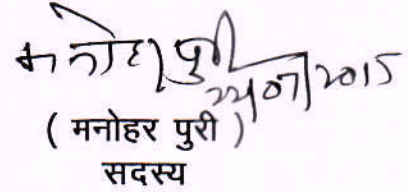 मनोहर पुरी
22/07/2015
( मनोहर पुरी )
सदस्य